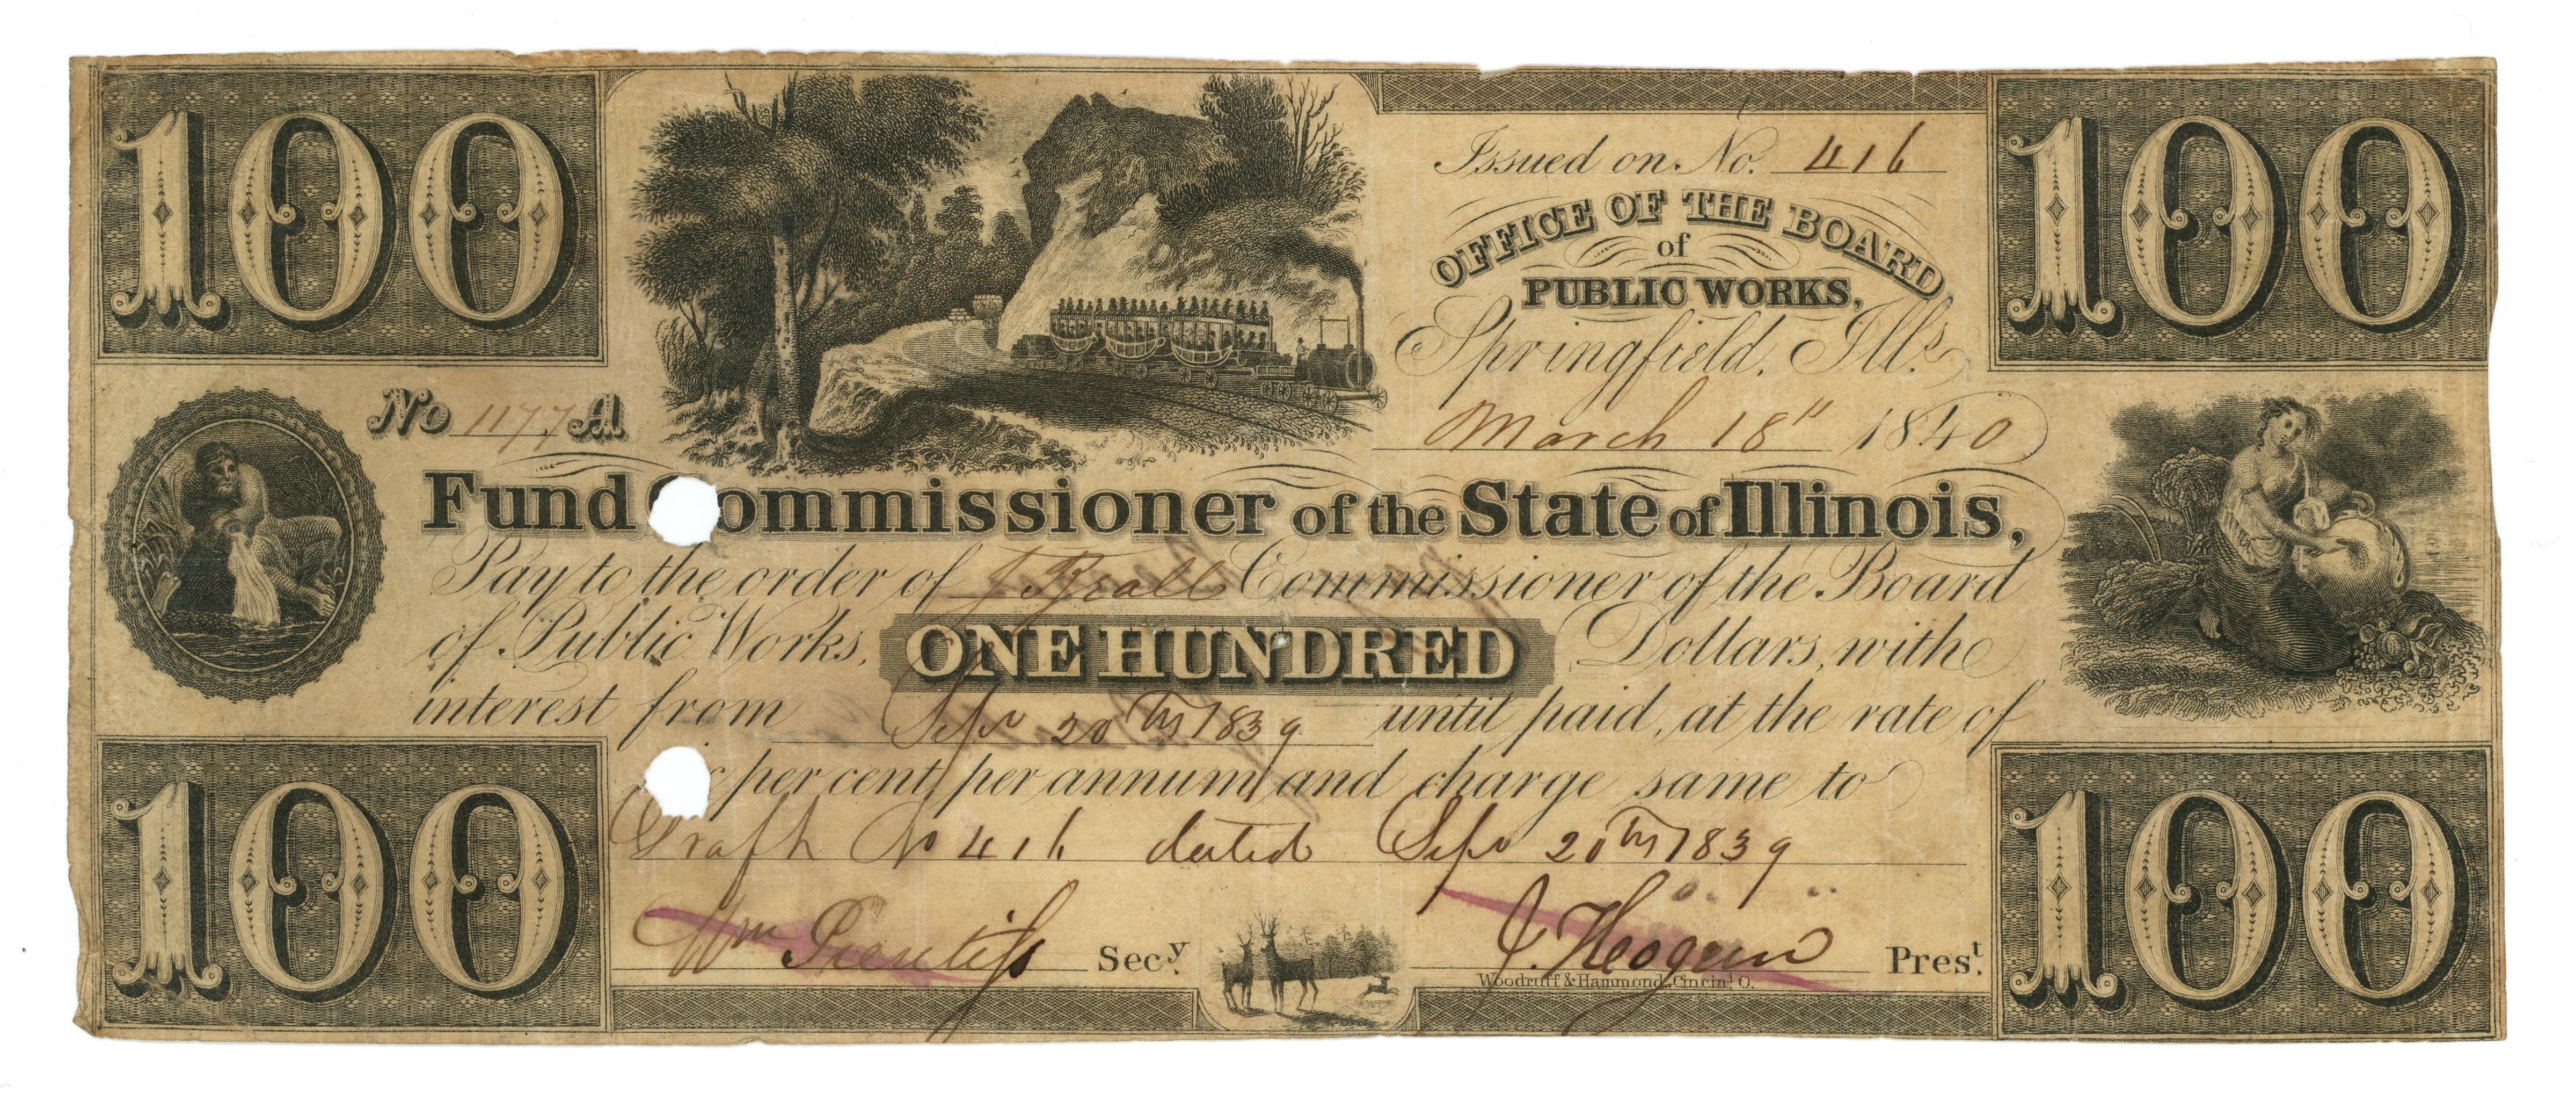 100
100
Issued on No. 416
OFFICE OF THE BOARD
of
PUBLIC WORKS,
Springfield, Ills.
No 1177 A
March 18" 1840
Fund ommissioner of the State of Illinois,
Pay to the order of J Commissioner of the Board
of Public Works, ONE HUNDRED Dollars, with
interest from Sepr 20th 1839 until paid, at the rate of
per cent, per annum, and charge same to
Draft No 416 dated Sepr 20th 1839
Wm Prentiss Secy.
J. Prest.
Woodruff & Hammond, Cincin. O.
100
100